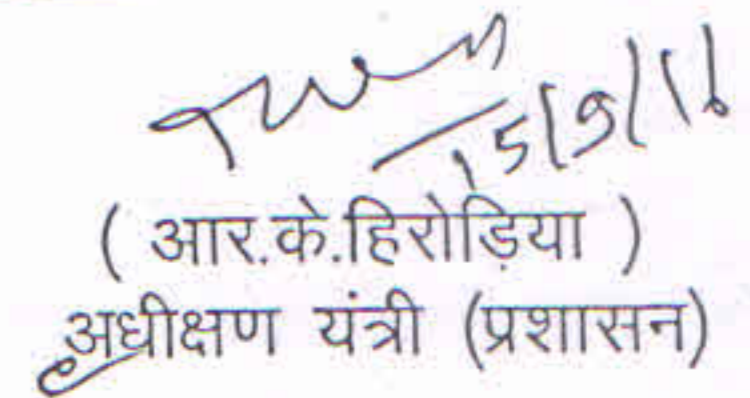 15/9/11
( आर.के.हिरोड़िया )
अधीक्षण यंत्री (प्रशासन)